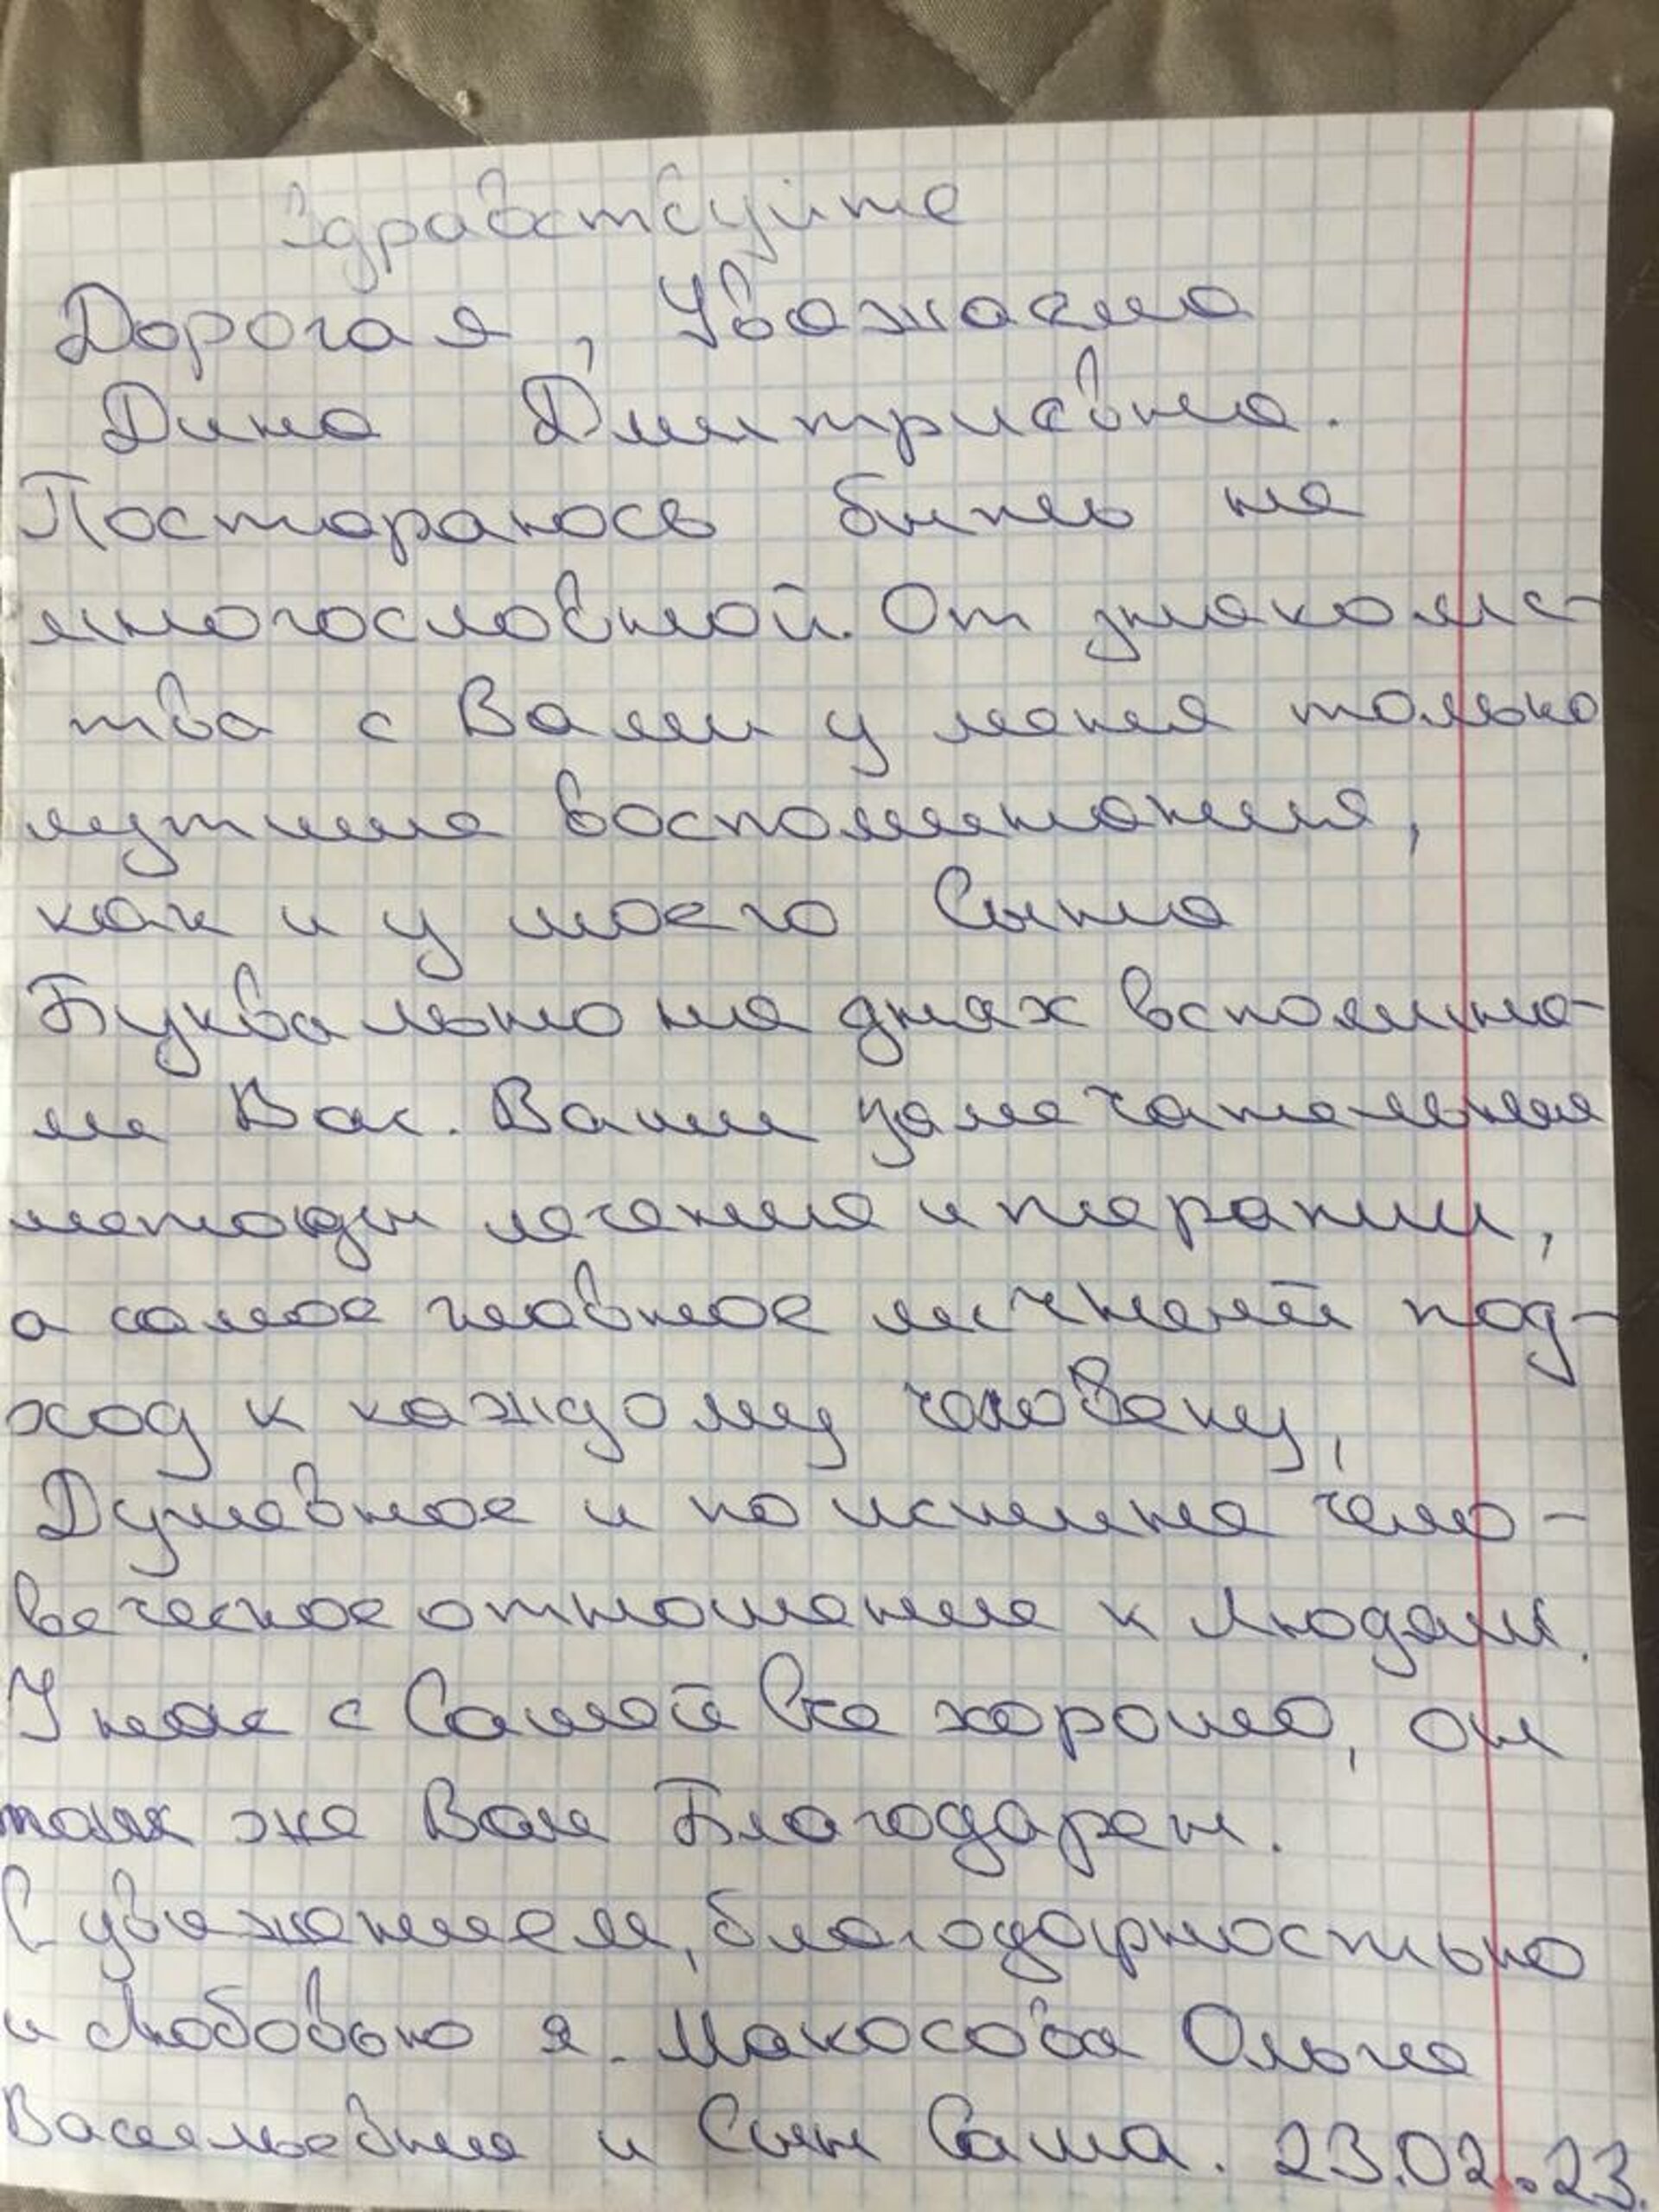 Здравствуйте
Дорогая, Уважаема
Дина Дмитриевна.
Постараюсь быть не
многословной. От знакомс-
тва с Вами у меня только
лутшие воспоминания,
как и у моего Сына
Буквально на днях вспомина-
ли Вас. Ваши замечательные
методы лечения и терапии,
а самое главное личный под-
ход к каждому человеку,
Душевное и по истине чело-
веческое отношение к людям.
У нас с Сашей все хорошо, он
так же Вам Благодарен.
С уважением, благодарностью
и Любовью я. Макосова Ольга
Васильевна и Сын Саша. 23.02.23.